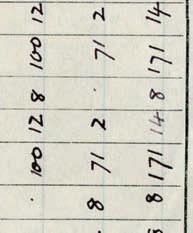 . 100 12 8 100 12
8 71 2 . 71 2
8 171 14 8 171 14